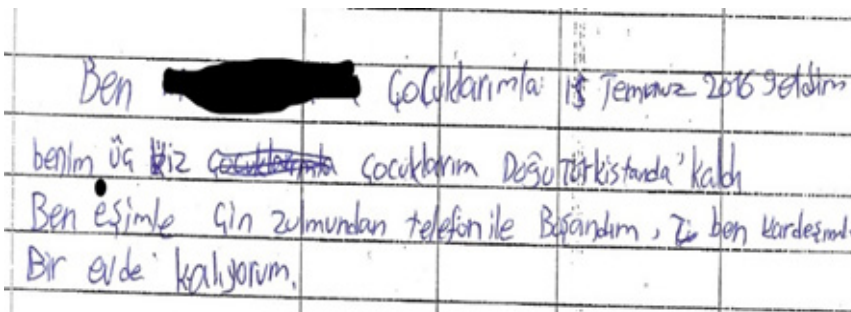 Ben Çocuklarımla 15 Temmuz 2016 geldim
benim üç kiz çocuklarım Doğu Türkistanda' kaldı
Ben eşimle Çin zulmundan telefon ile Boşandım, ben kardeşiml
Bir evde kalıyorum.